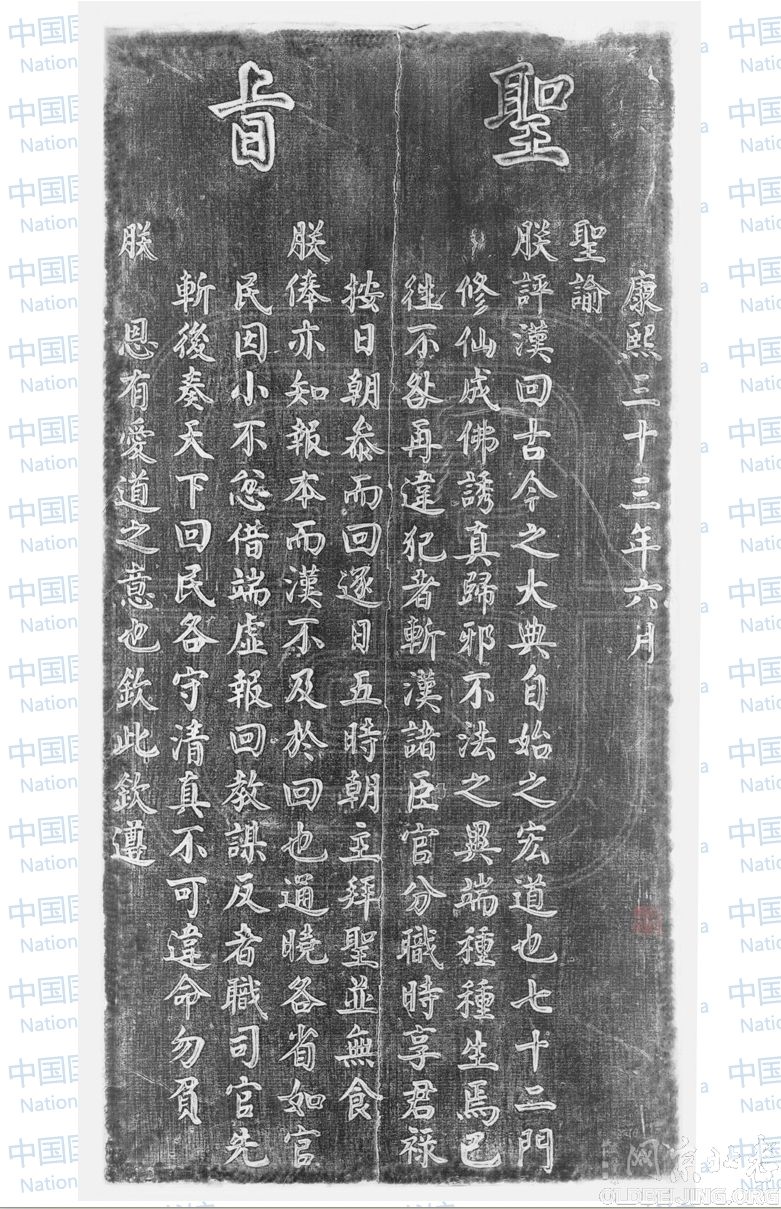 聖旨
康熙三十三年六月
聖諭
朕評漢回古今之大典自始之宏道也七十二門
修仙成佛誘真歸邪不法之異端種種生焉已
徃不咎再違犯者斬漢諸臣官分職時享君祿
按日朝叅而回逐日五時朝主拜聖並無食
朕俸亦知報本而漢不及於回也通曉各省如官
民因小不忿借端虛報回教謀反者職司官先
斬後奏天下回民各守清真不可違命勿負
朕 恩有愛道之意也欽此欽遵
老北京网
OLDBEIJING.ORG